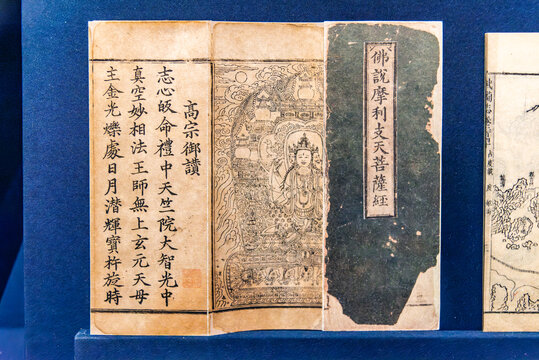 佛說摩利支天菩薩經
高宗御讚
志心皈命禮中天竺院大智光中
真空妙相法王師無上玄元天母
主金光爍處日月潛輝寶杵旋時